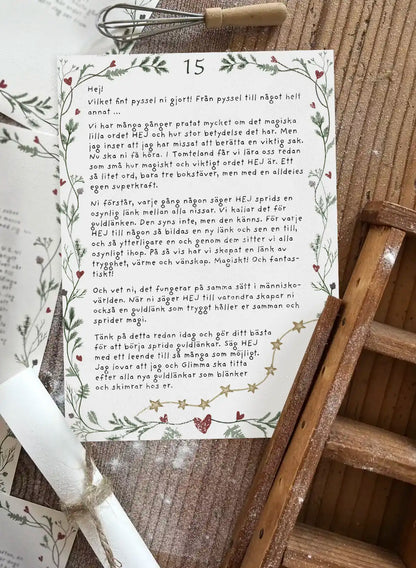 15
Hej!
Vilket fint pyssel ni gjort! Från pyssel till något helt
annat ...
Vi har många gånger pratat mycket om det magiska
lilla ordet HEJ och hur stor betydelse det har. Men
jag inser att jag har missat att berätta en viktig sak.
Nu ska ni få höra. I Tomteland får vi lära oss redan
som små hur magiskt och viktigt ordet HEJ är. Ett
så litet ord, bara tre bokstäver, men med en alldeles
egen superkraft.
Ni förstår, varje gång någon säger HEJ sprids en
osynlig länk mellan alla nissar. Vi kallar det för
guldlänken. Den syns inte, men den känns. För varje
HEJ till någon så bildas en ny länk och sen en till,
och så ytterligare en och genom dem sitter vi alla
osynligt ihop. På så vis har vi skapat en länk av
trygghet, värme och vänskap. Magiskt! Och fantas-
tiskt!
Och vet ni, det fungerar på samma sätt i människo-
världen. När ni säger HEJ till varandra skapar ni
också en guldlänk som tryggt håller er samman och
sprider magi.
Tänk på detta redan idag och gör ditt bästa
för att börja sprida guldlänkar. Säg HEJ
med ett leende till så många som möjligt.
Jag lovar att jag och Glimma ska titta
efter alla nya guldlänkar som blänker
och skimrat hos er.